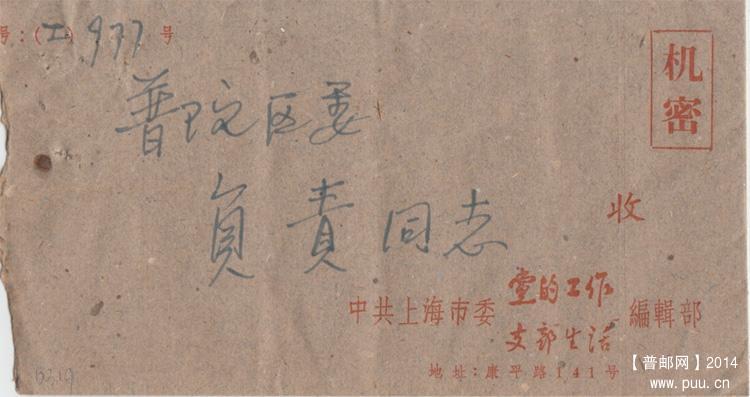 号：(工) 977 号
机密
普陀区委
負責同志
收
中共上海市委 党的工作 支部生活 编辑部
地址：康平路141号
6319
【普邮网】2014
www.puu.cn